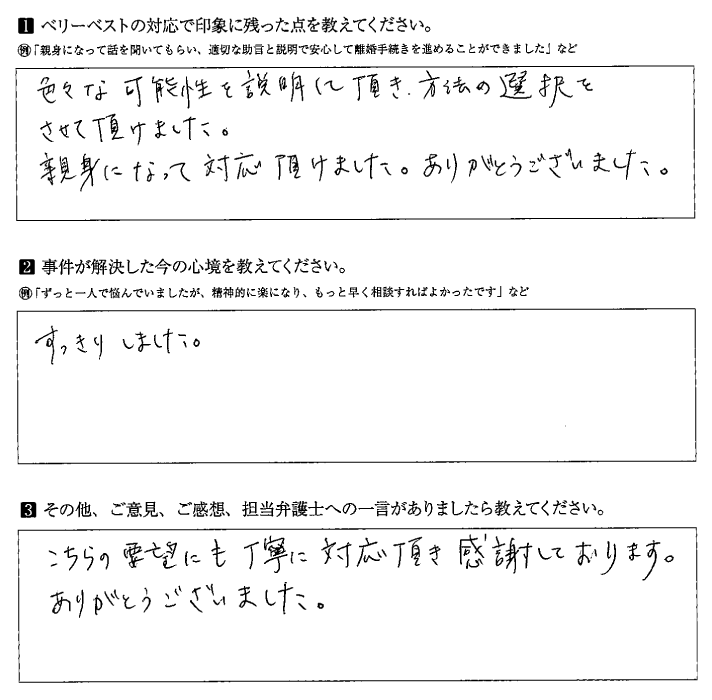 1 ベリーベストの対応で印象に残った点を教えてください。
例「親身になって話を聞いてもらい、適切な助言と説明で安心して離婚手続きを進めることができました」など
色々な可能性を説明して頂き、方法の選択を
させて頂けました。
親身になって対応頂けました。ありがとうございました。
2 事件が解決した今の心境を教えてください。
例「ずっと一人で悩んでいましたが、精神的に楽になり、もっと早く相談すればよかったです」など
すっきりしました。
3 その他、ご意見、ご感想、担当弁護士への一言がありましたら教えてください。
こちらの要望にも丁寧に対応頂き感謝しております。
ありがとうございました。